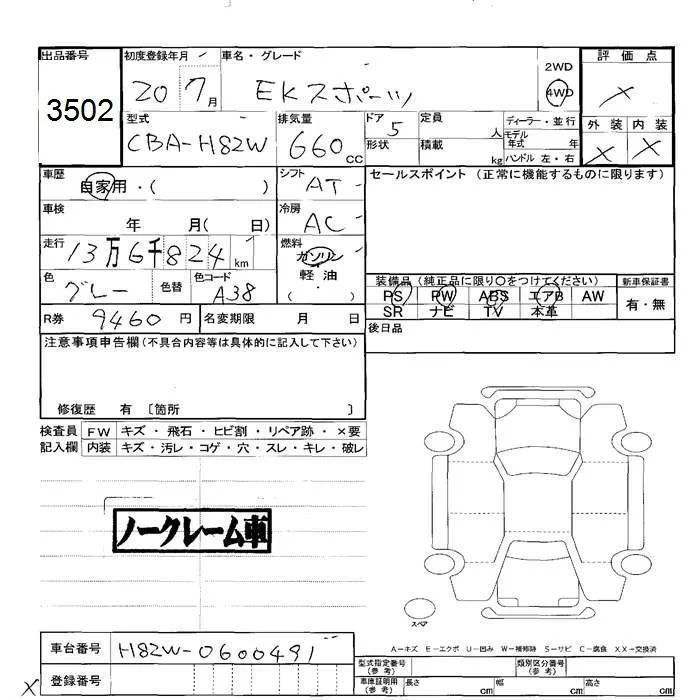 出品番号 初度登録年月 車名・グレード 2WD 評価点
3502 20 7月 EKスポーツ 4WD ×
型式 排気量 ドア 定員 ディーラー・並行 外装 内装
CBA-H82W 660cc 5 人 モデル年式 年 × ×
形状 積載 kg ハンドル 左・右
車歴 自家用・( ) シフト AT セールスポイント (正常に機能するものに限ります)
車検 年 月( 日) 冷房 AC
走行 13万6千824km 燃料 ガソリン
軽油
( ・ )
色 グレー 色替 色コード A38
装備品 (純正品に限り〇をつけてください) 新車保証書
PS PW ABS エアB AW 有・無
SR ナビ TV 本革
R券 9460円 名変期限 月 日 後日品
注意事項申告欄(不具合内容等は具体的に記入して下さい)
修復歴 有 〔箇所 〕
検査員 FW キズ・飛石・ヒビ割・リペア跡・×要
記入欄 内装 キズ・汚レ・コゲ・穴・スレ・キレ・破レ
ノークレーム車
スペア
A-キズ E-エクボ U-凹み W-補修跡 S-サビ C-腐食 XX-交換済
車台番号 H82W-0600491
登録番号
×
型式指定番号(参考) 類別区分番号(参考)
車庫証明用(参考) 長さ cm 幅 cm 高さ cm